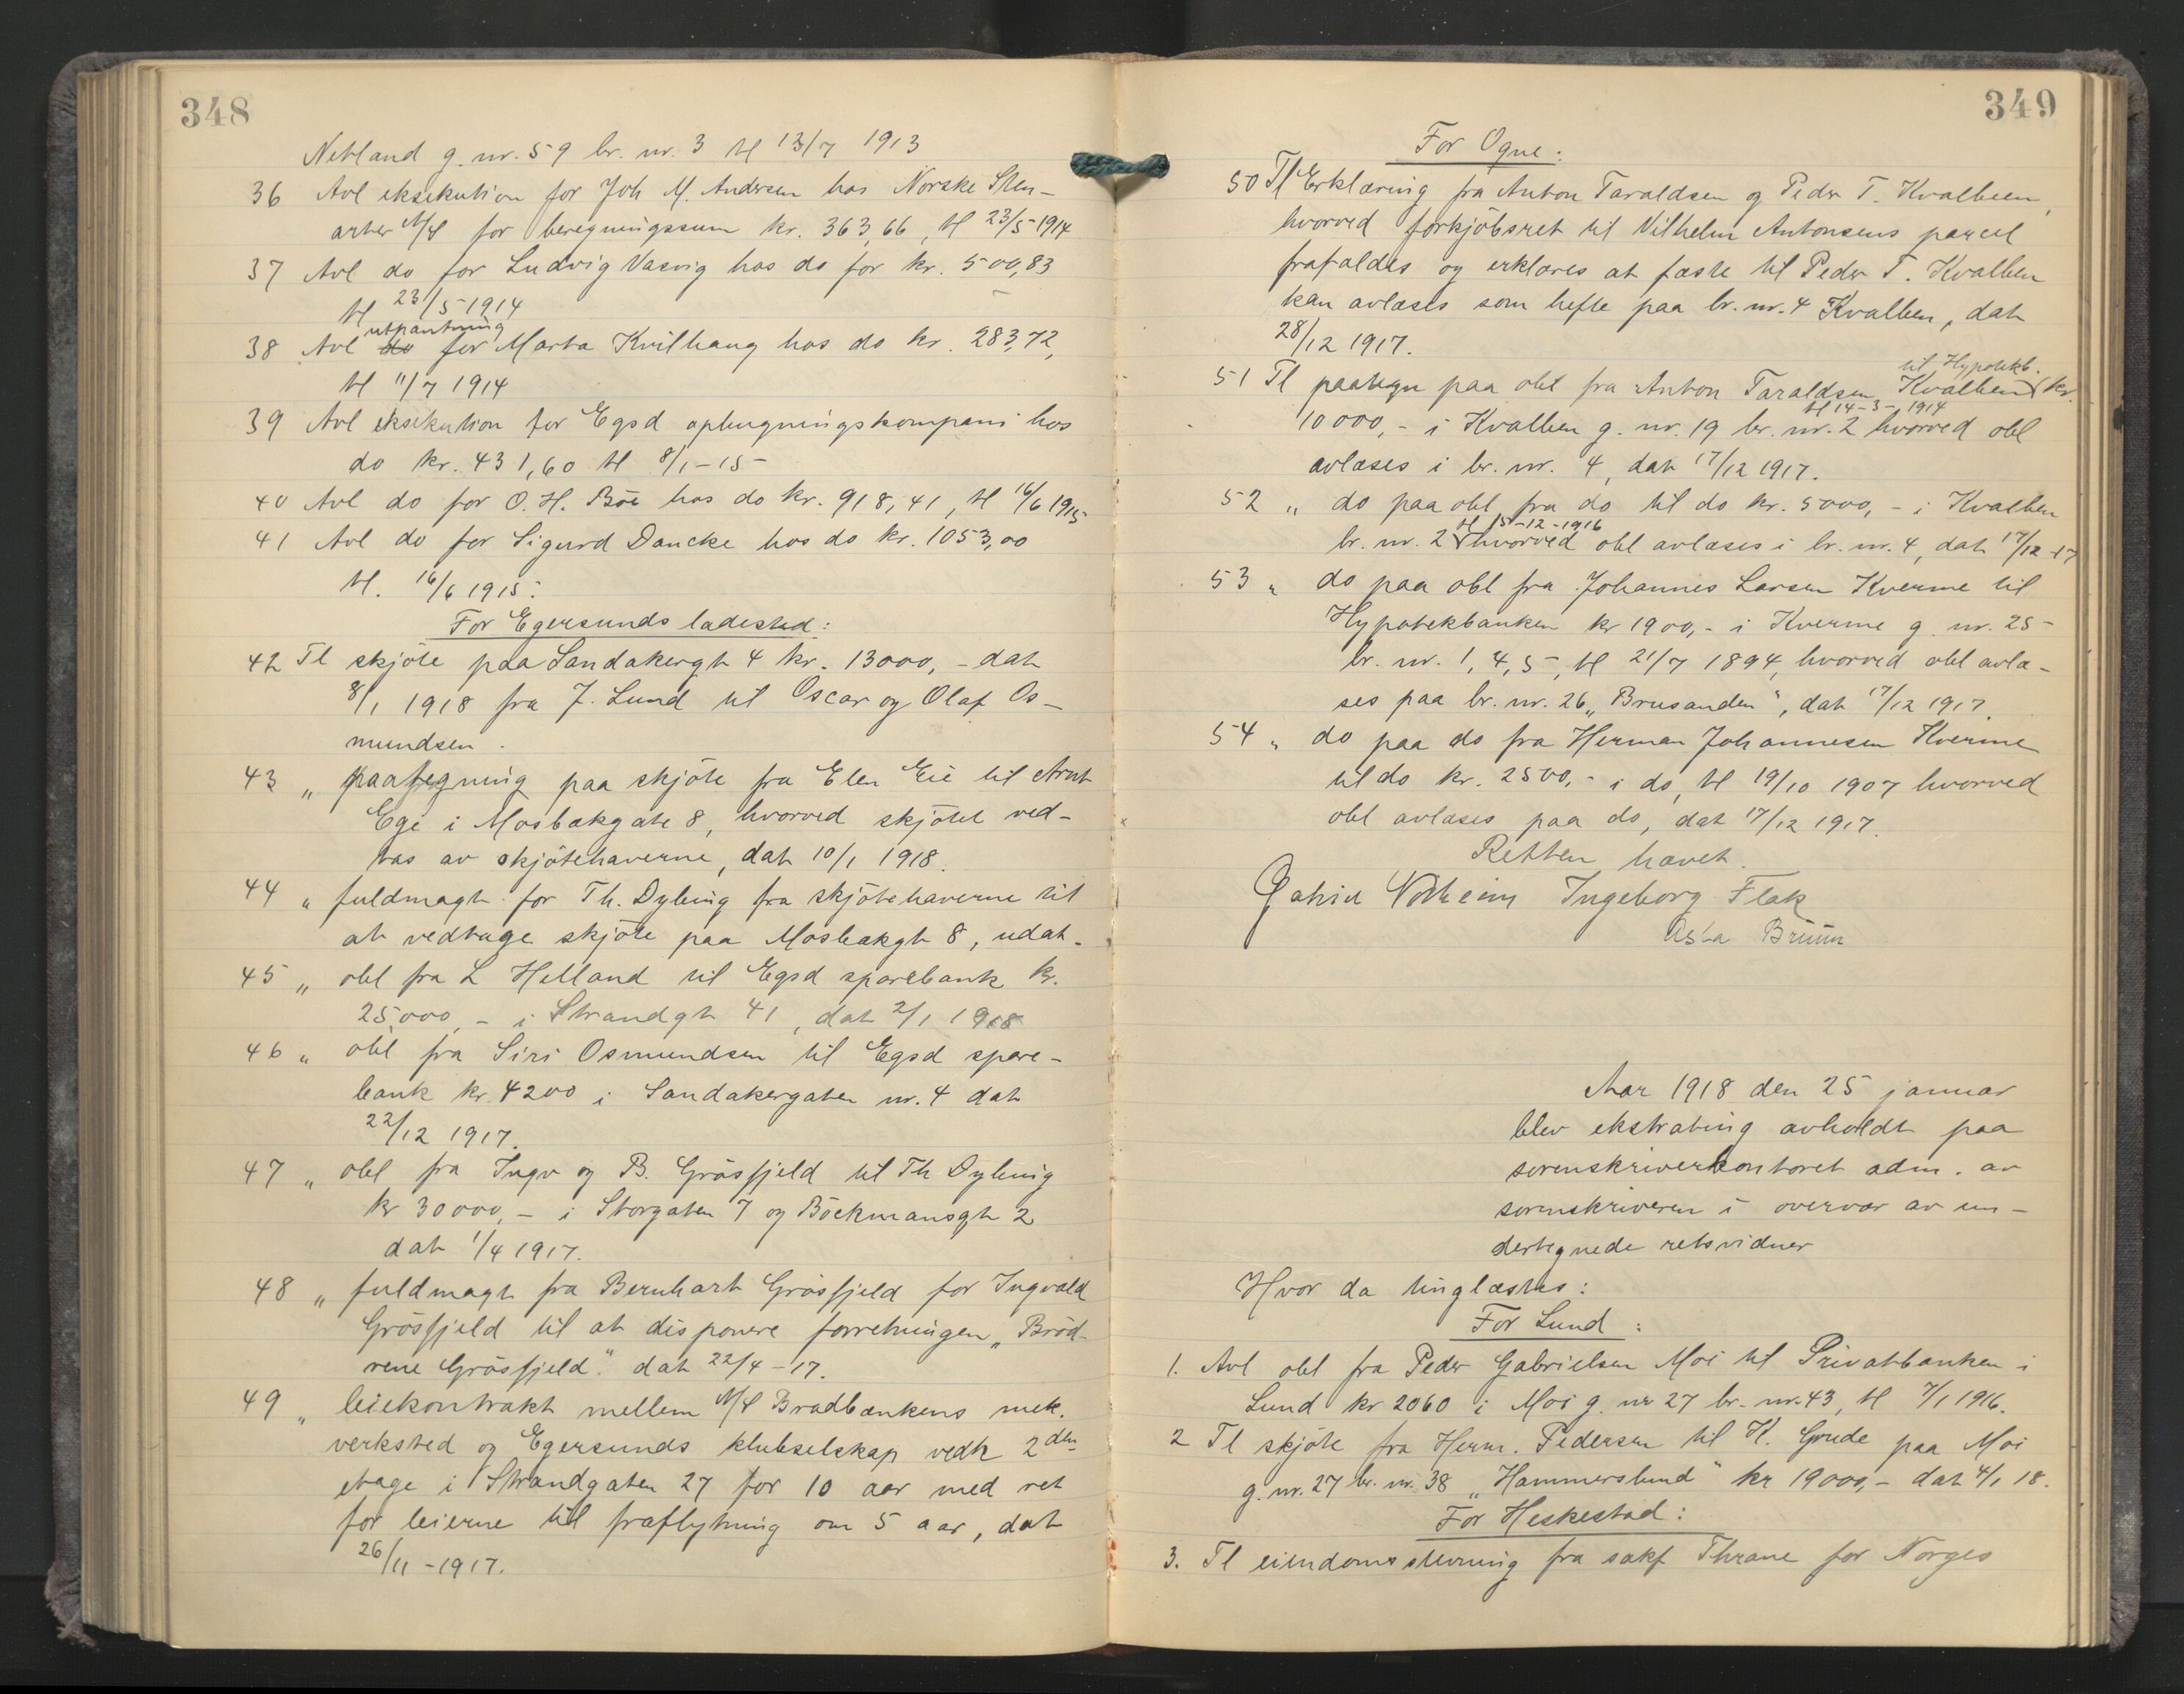 348
Netland g. nr. 59 br. nr. 3 tl 13/7 1913
36 Avl eksekution for Joh M. Andersen hos Norske Sten-
arter A/S for beregningssum kr. 363,66, tl 23/5 1914
37 Avl do for Ludvig Vasvig hos do for kr. 500,83
tl 23/5 1914
utpantning
38 Avl do for Marta Kvilhaug hos do kr. 283,72,
tl 11/7 1914
39 Avl eksekution for Egsd ophugningskompani hos
do kr. 431,60 tl 8/1-15
40 Avl do for O. H. Böe hos do kr. 918,41, tl 16/6 1915
41 Avl do for Sigurd Dancke hos do kr. 1053,00
tl. 16/6 1915.
For Egersunds ladested:
42 Tl skjöte paa Sandakergt 4 kr. 13000,- dat
8/1 1918 fra J. Lund til Oscar og Olaf Os-
mundsen.
43 „ paategning paa skjöte fra Elen Eie til Arnt
Ege i Mosbækgate 8, hvorved skjötet ved-
tas av skjötehaverne, dat 10/1 1918.
44 „ fuldmagt for Th. Dybing fra skjötehaverne til
at vedtage skjöte paa Mosbækgt 8, udat.
45 „ obl fra L Helland til Egsd sparebank kr.
25,000,- i Strandgt 41, dat 2/1 1918
46 „ obl fra Siri Osmundsen til Egsd spare-
bank kr. 4200 i Sandakergaten nr. 4 dat
22/12 1917.
47 „ obl fra Ingv og B. Grösfjeld til Th Dybing
kr 30000,- i Storgaten 7 og Böckmansgt 2
dat 1/4 1917.
48 „ fuldmagt fra Bernhart Grösfjeld for Ingvald
Grösfjeld til at disponere forretningen „Bröd-
rene Grösfjeld". dat 22/4-17.
49 „ leiekontrakt mellem A/S Bradbænkens mek.
verksted og Egersunds klubselskap vedk 2den
etage i Strandgaten 27 for 10 aar med ret
for leierne til fraflytning om 5 aar, dat
26/11-1917.
349
For Ogne:
50 Tl Erklæring fra Anton Taraldsen og Peder T. Kvalbeen,
hvorved forkjöbsret til Vilhelm Antonsens parcel
frafaldes og erklæres at fæste til Peder T. Kvalben
kan avlæses som hefte paa br. nr. 4 Kvalben, dat
28/12 1917.
til Hypotekb.
51 Tl paategn paa obl fra Anton Taraldsen Kvalben kr.
tl 14-3-1914
10000,- i Kvalben g. nr. 19 br. nr. 2 hvorved obl
avlæses i br. nr. 4, dat 17/12 1917.
52 „ do paa obl fra do til do kr. 5000,- i Kvalben
tl 15-12-1916
br. nr. 2 hvorved obl avlæses i br. nr. 4, dat 17/12-17
53 „ do paa obl fra Johannes Larsen Kverme til
Hypotekbanken kr 1900,- i Kverme g. nr. 25
br. nr. 1, 4, 5, tl 21/7 1894, hvorved obl avlæ-
ses paa br. nr. 26 „Brusanden", dat 17/12 1917.
54 „ do paa do fra Herman Johannesen Kverme
til do kr. 2500,- i do, tl 19/10 1907 hvorved
obl avlæses paa do, dat 17/12 1917.
Retten hævet.
Ingeborg Flak
Asta Bruun
Aar 1918 den 25 januar
blev ekstrating avholdt paa
sorenskriverkontoret adm. av
sorenskriveren i overvær av un-
dertegnede retsvidner
Hvor da tinglæstes:
For Lund:
1. Avl obl fra Peder Gabrielsen Moi til Privatbanken i
Lund kr 2060 i Moi g. nr 27 br. nr. 43, tl 7/1 1916.
2 Tl skjöte fra Herm. Pedersen til K. Grude paa Moi
g. nr. 27 br. nr. 38 „Hammerslund" kr 19000,- dat 4/1 18.
For Heskestad:
3. Tl eiendomsstevning fra sakf Thrane for Norges